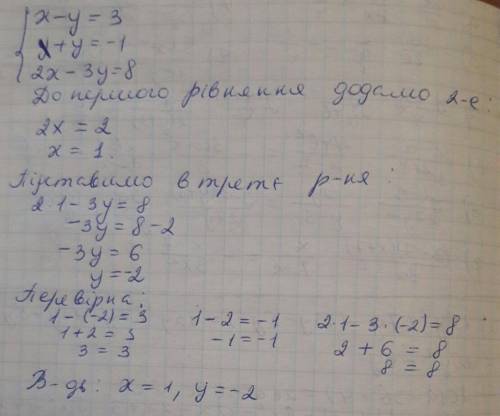 x-y=3
x+y=-1
2x-3y=8
До першого рівняння додамо 2-е:
2x=2
x=1.
Підставимо в третє р-ня:
2·1-3y=8
-3y=8-2
-3y=6
y=-2
Перевірка:
1-(-2)=3
1+2=3
3=3
1-2=-1
-1=-1
2·1-3·(-2)=8
2+6=8
8=8
В-дь: x=1, y=-2